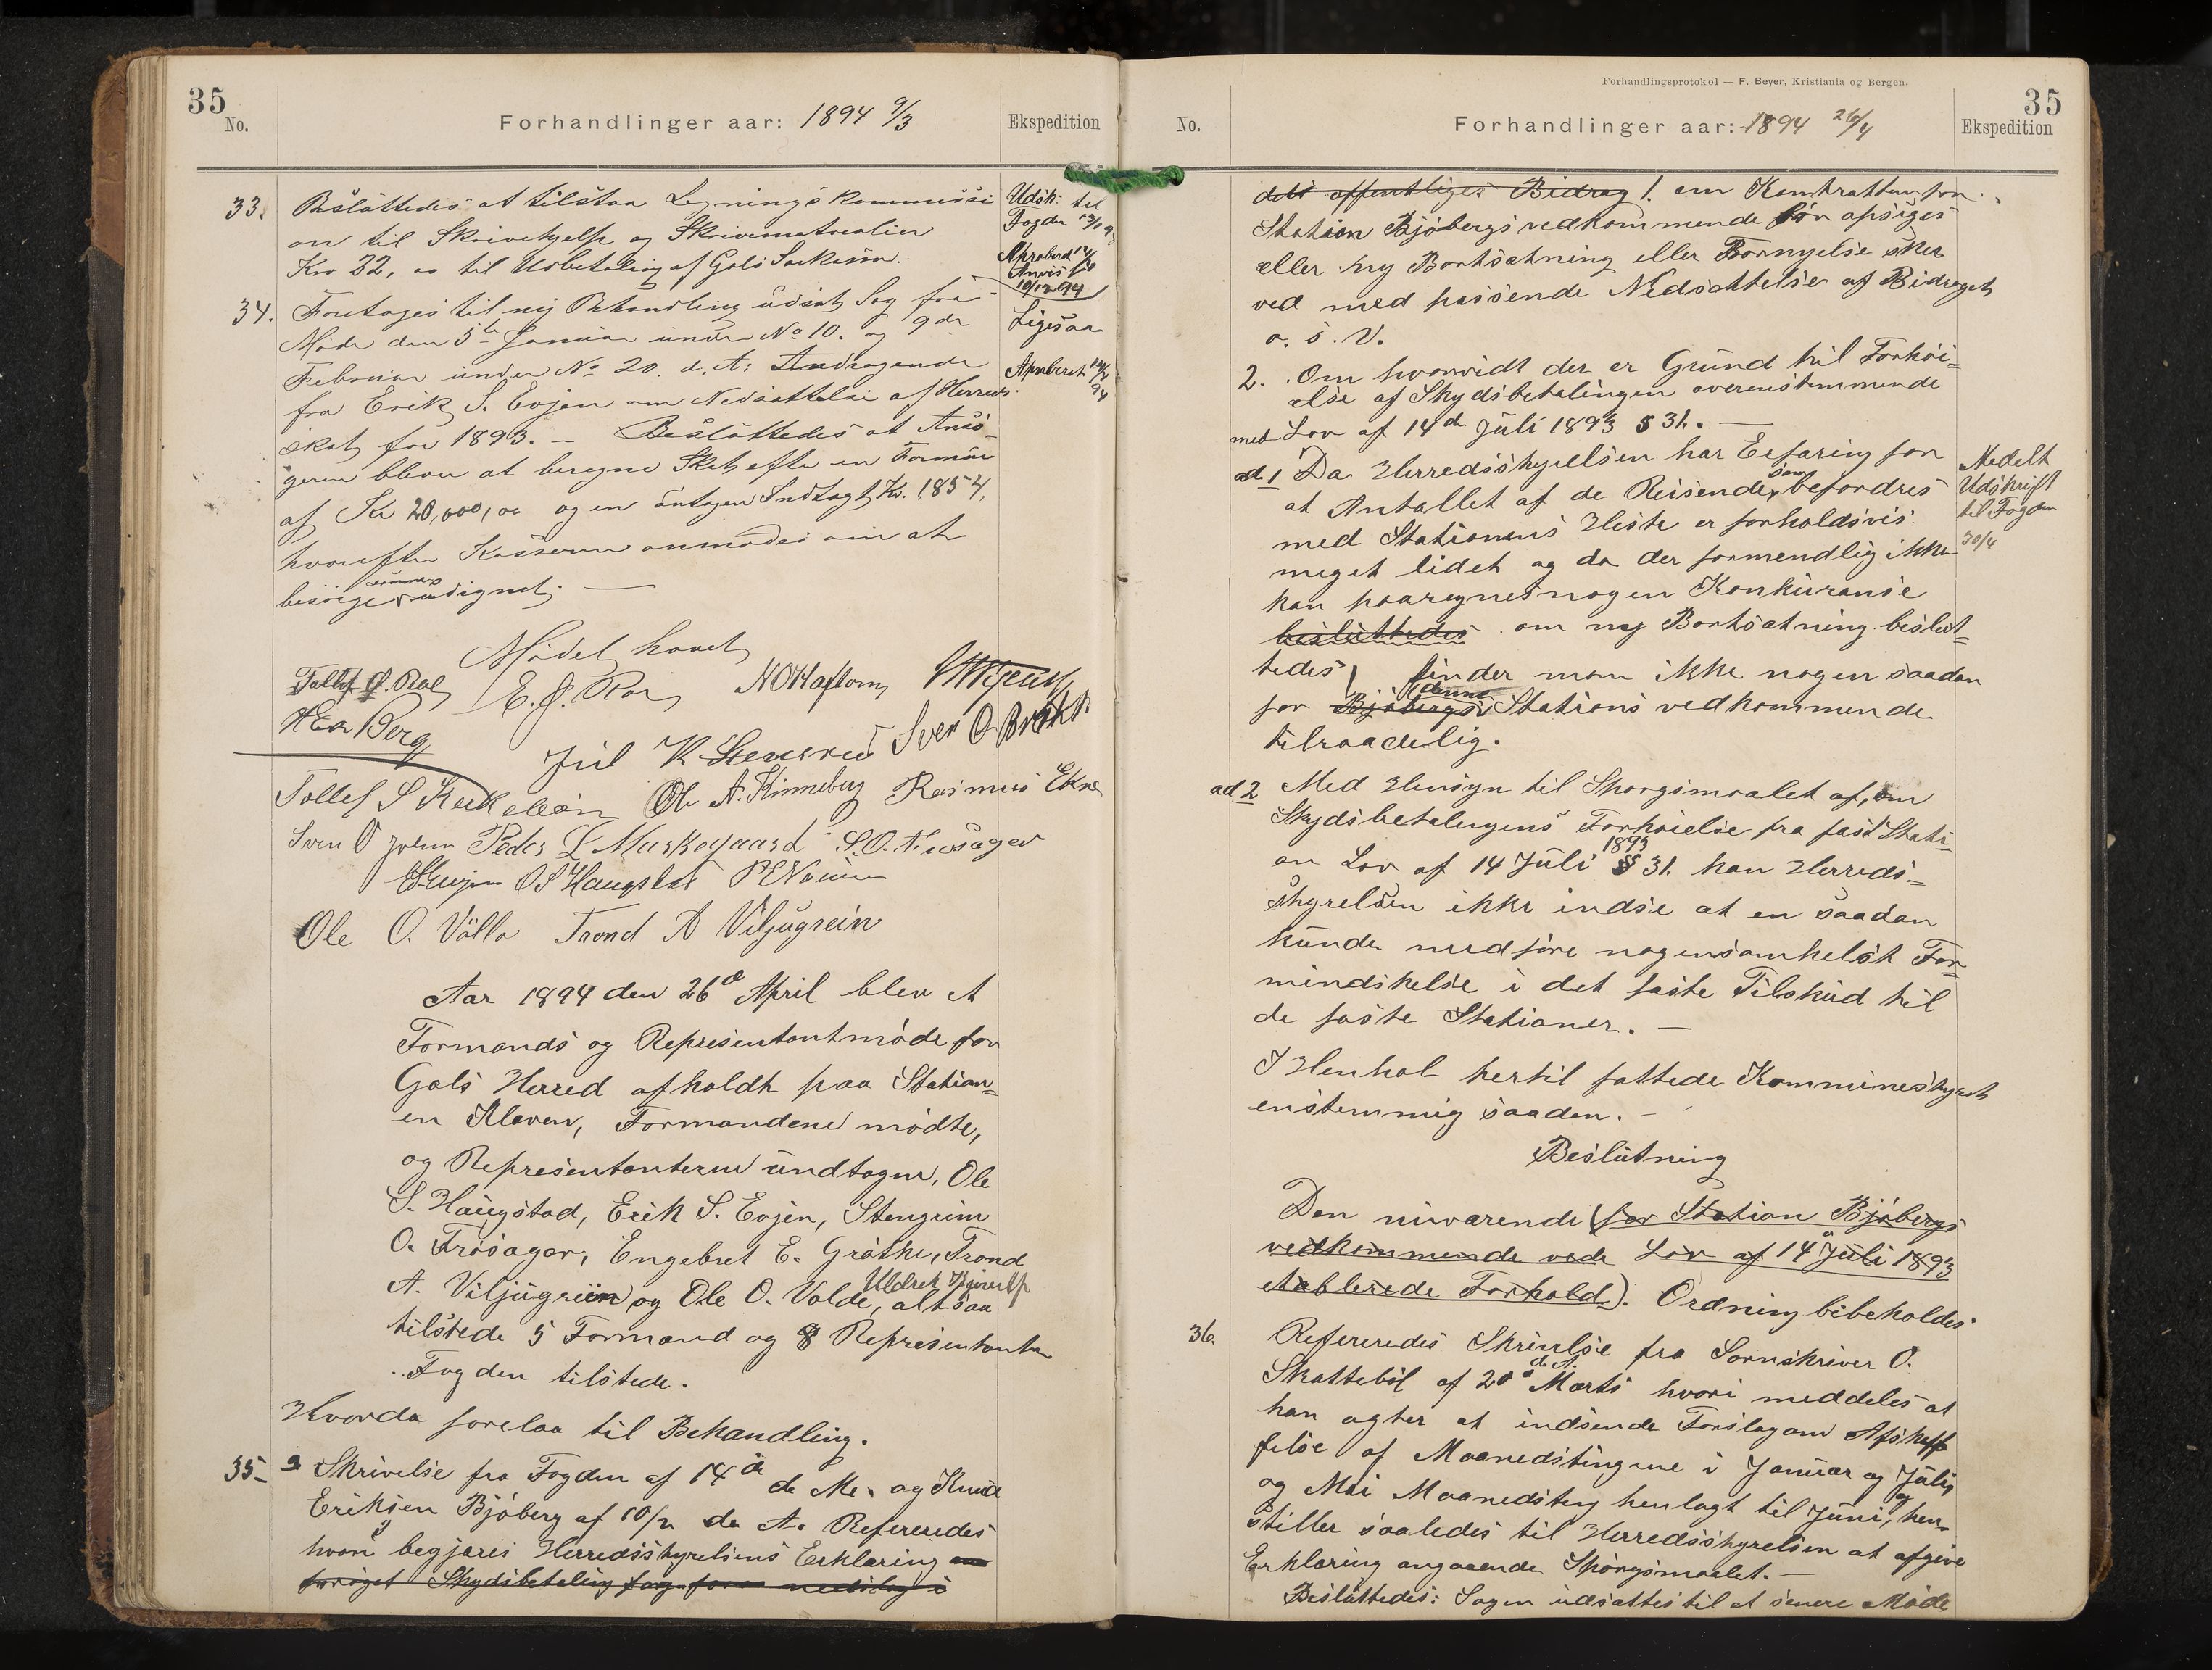 35
No.
Forhandlinger aar: 1894 9/3
Ekspedition
33. Besluttedes at tilstaa Ligningskommissi
on til Skrivehjelp og Skrivematrealier
Kro 32, oo til Udbetaling af Gols Sockasse.
Udsk: til
Fogden
Aproberet
Anvist
10/12 94
34. Foretoges til ny Behandling udsat Sag fra
Møde den 5te Januar under No 10. og 9de
Februar under No 20. d. A: Andragende
fra Erik S. Evjen om Nedsættelse af Herreds-
skat for 1893. — Besluttedes at Ansø-
geren bliver at beregne Skat efter en Formue
af Kr 20,000,00 og en antagen Indtægt Kr. 1854,
hvorefter Kassereren anmodes om at
besørge samme udignet. —
Ligesaa
Aproberet
94
Mødet hævet
Tollef O. Roe E. J. Ro N O Haftorn
H Berg
Jul K. Stensrud Sven O Bråkt
Tollef S Ole A. Kinneberg Rasmus Ekre
Sven O Peder L Muskegaard S. O. Frøsager
E S Evjen O S Haugstad
Ole O. Volle Trond A Viljugrein
Aar 1894 den 26d April blev et
Formands og Representantmøde for
Gols Herred afholdt paa Station-
en Kleven, Formændene mødte,
og Representanterne undtagen, Ole
S. Haugstad, Erik S. Evjen, Stengrim
O. Frøsager, Engebret E. Grøthe, Trond
A. Viljugrein og Ole O. Volde, Uldrek altsaa
tilstede 5 Formænd og 8 Representanter
Fogden tilstede.
Hvorda forelaa til Behandling.
35 a Skrivelse fra Fogden af 14de ds Ms. og Knud
Eriksen Bjøberg af 10/2 ds A. Refereredes
hvori begjæres Herredsstyrelsens Erklæring om
forøget Skydsbetaling nedslag i
Forhandlingsprotokol — F. Beyer, Kristiania og Bergen.
35
No.
Forhandlinger aar: 1894 26/4
Ekspedition
det offentliges Bidrag 1. om Kontrakten for
Station Bjøbergs vedkommende bør opsiges
eller ny Bortsætning eller Fornyelse sker
ved med passende Nedsættelse af Bidraget
o. s. v.
2. Om hvorvidt der er Grund til Forhøi=
else af Skydsbetalingen overenstemmende
med Lov af 14de Juli 1893 § 31. —
ad 1 Da Herredsstyrelsen har Erfaring for
at Antallet af de Reisende som befordres
med Stationens Heste er forholdsvis
meget lidet og da der formendlig ikke
kan paaregnes nogen Konkuranse
besluttedes om ny Bortsætning beslut=
tedes finder man ikke nogen saadan
for Bjøbergs denne Stations vedkommende
tilraadelig.
Medelt
Udskrift
til Fogden
30/4
ad 2 Med Hensyn til Spørgsmaalet af, om
Skydsbetalingens Forhøielse fra fast Stati=
on Lov af 14 Juli 1893 § 31. kan Herreds=
styrelsen ikke indse at en saadan
kunde medføre nogensomhelst For=
mindskelse i det faste Tilskud til
de faste Stationer. —
I Henhol hertil fattede Kommunestyret
enstemmig saadan. —
Beslutning
Den nuværende (for Station Bjøbergs
vedkommende ved Lov af 14 Juli 1893
etablerede Forhold). Ordning bibeholdes
36. Refereredes Skrivelse fra Sorenskriver O.
Skattebøl af 20d Marts d. A. hvori meddeles at
han agter at indsende Forslag om Afskaf
felse af Maanedstingene i Januar og Juli
og Mai Maanedsting henlagt til Juni, og hen-
stiller saaledes til Herredsstyrelsen at afgive
Erklæring angaaende Spørgsmaalet. —
Besluttedes: Sagen udsættes til et senere Møde